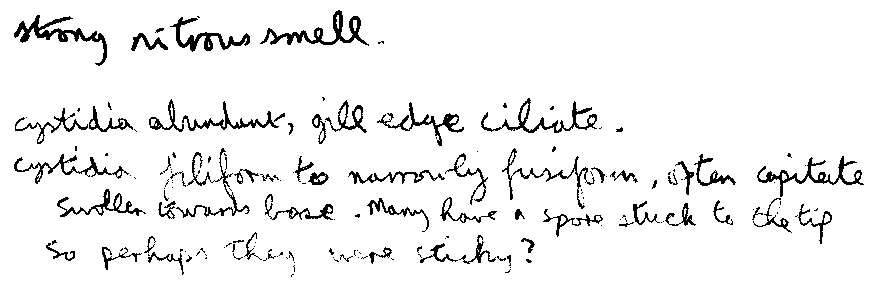 strong nitrous smell.
cystidia abundant, gill edge ciliate.
cystidia filiform to narrowly fusiform, often capitate
swollen towards base. Many have a spore stuck to the tip
so perhaps they were sticky?